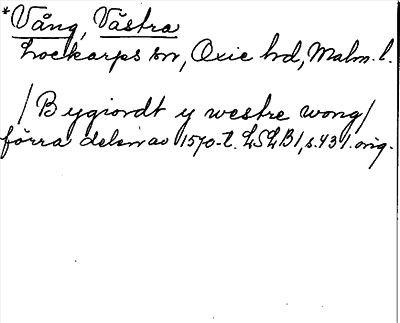 *Vång, Västra
Lockarps sn, Oxie hd, Malm. l.
/Bygiordt y westre wong/
förra delen av 1570-t. LSLB1, s. 431. orig.